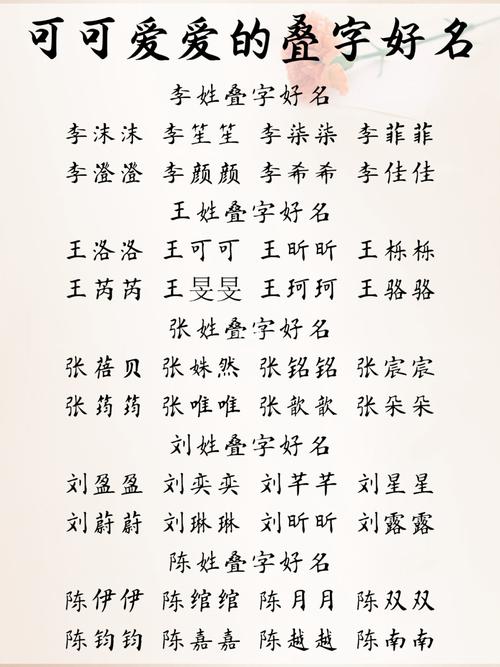 可可爱爱的叠字好名
李姓叠字好名
李沫沫 李笙笙 李柒柒 李菲菲
李澄澄 李颜颜 李希希 李佳佳
王姓叠字好名
王洛洛 王可可 王昕昕 王栎栎
王芮芮 王旻旻 王珂珂 王骆骆
张姓叠字好名
张蓓贝 张姝然 张铭铭 张宸宸
张筠筠 张唯唯 张歆歆 张朵朵
刘姓叠字好名
刘盈盈 刘奕奕 刘芊芊 刘星星
刘蔚蔚 刘琳琳 刘昕昕 刘露露
陈姓叠字好名
陈伊伊 陈绾绾 陈月月 陈双双
陈钧钧 陈嘉嘉 陈越越 陈南南